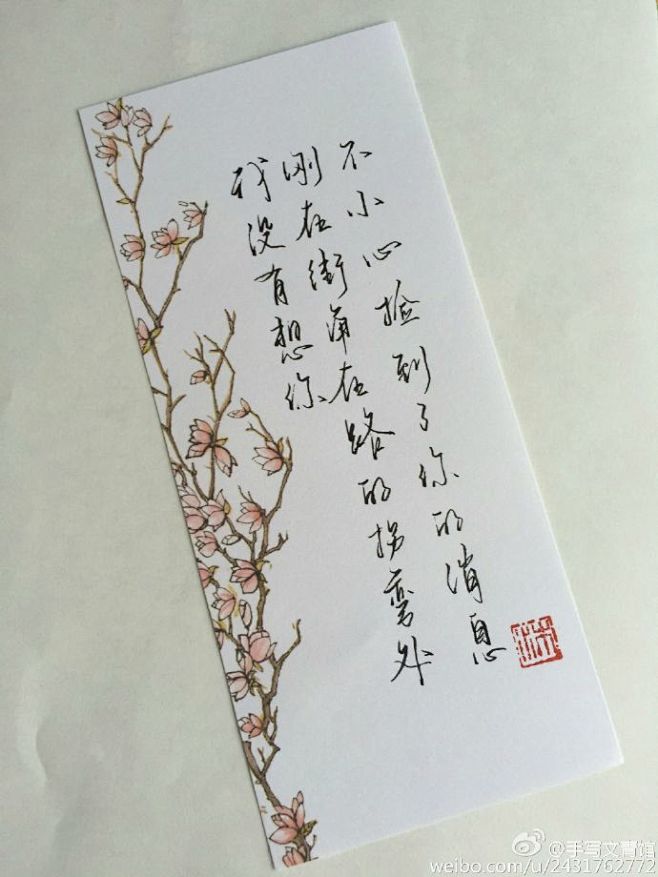 我没有想你
刚在街角在路的拐弯处
不小心捡到了你的消息
@手写文青馆
weibo.com/u/2431762772